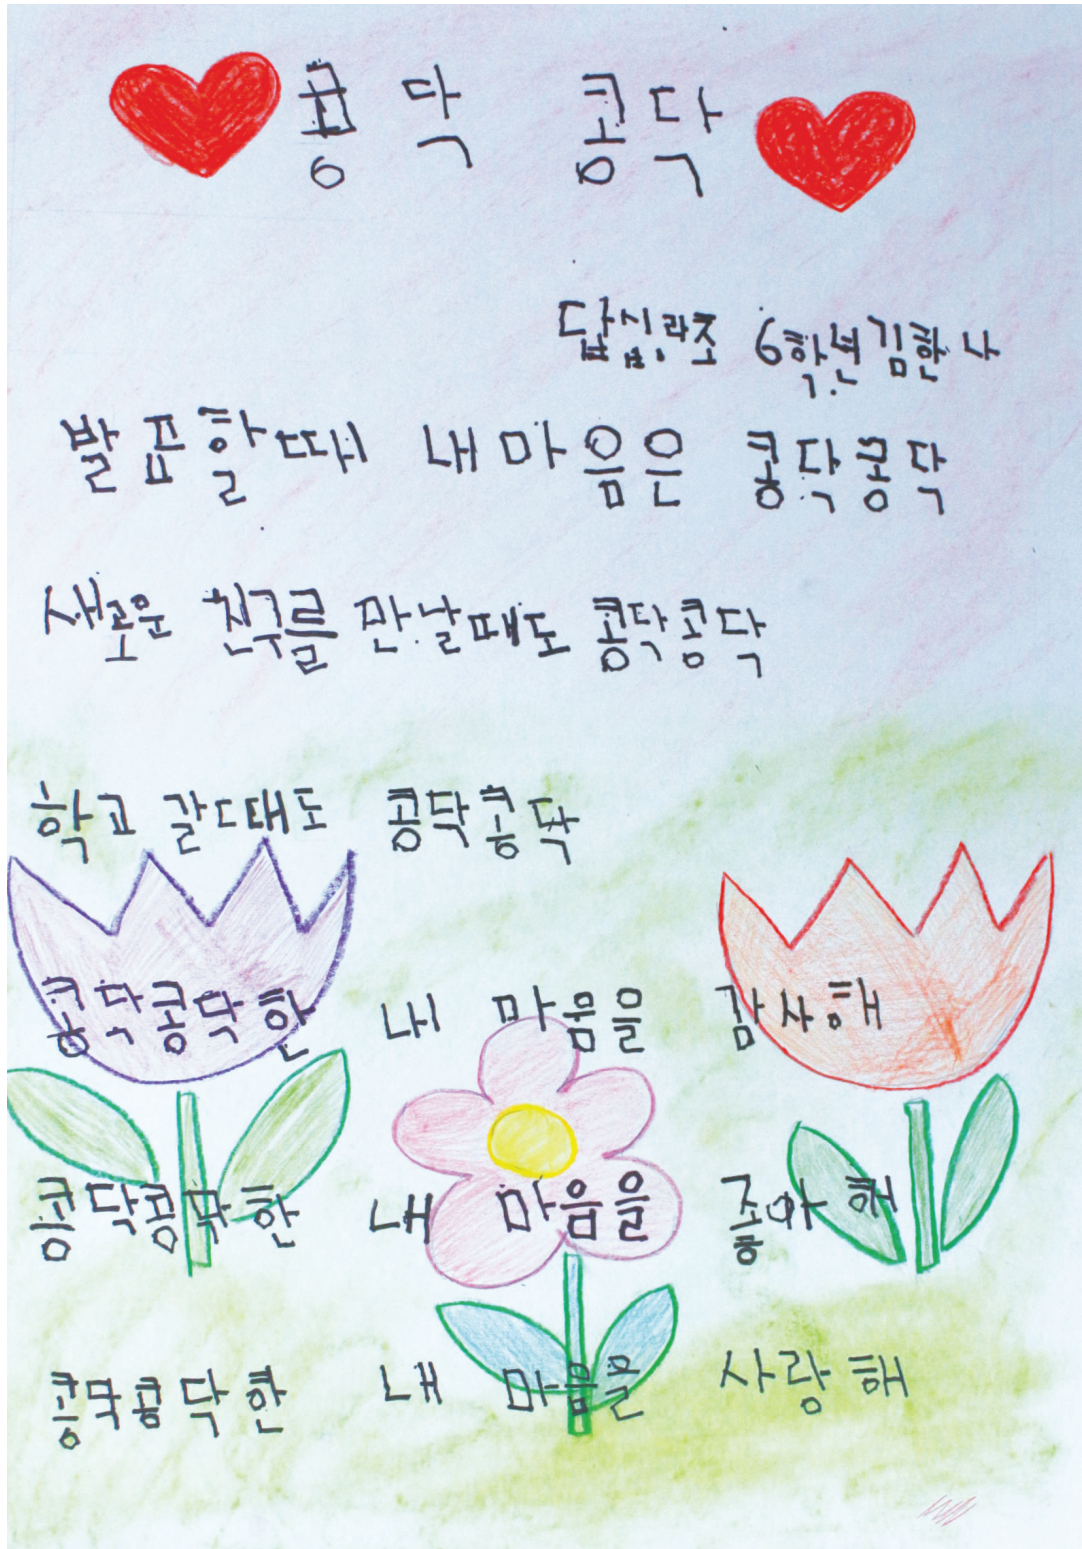 콩닥 콩닥
답십리초 6학년 김한나
발표할때 내 마음은 콩닥콩닥
새로운 친구를 만날때도 콩닥콩닥
학교 갈때도 콩닥콩닥
콩닥콩닥한 내 마음을 감사해
콩닥콩닥한 내 마음을 좋아해
콩닥콩닥한 내 마음을 사랑해